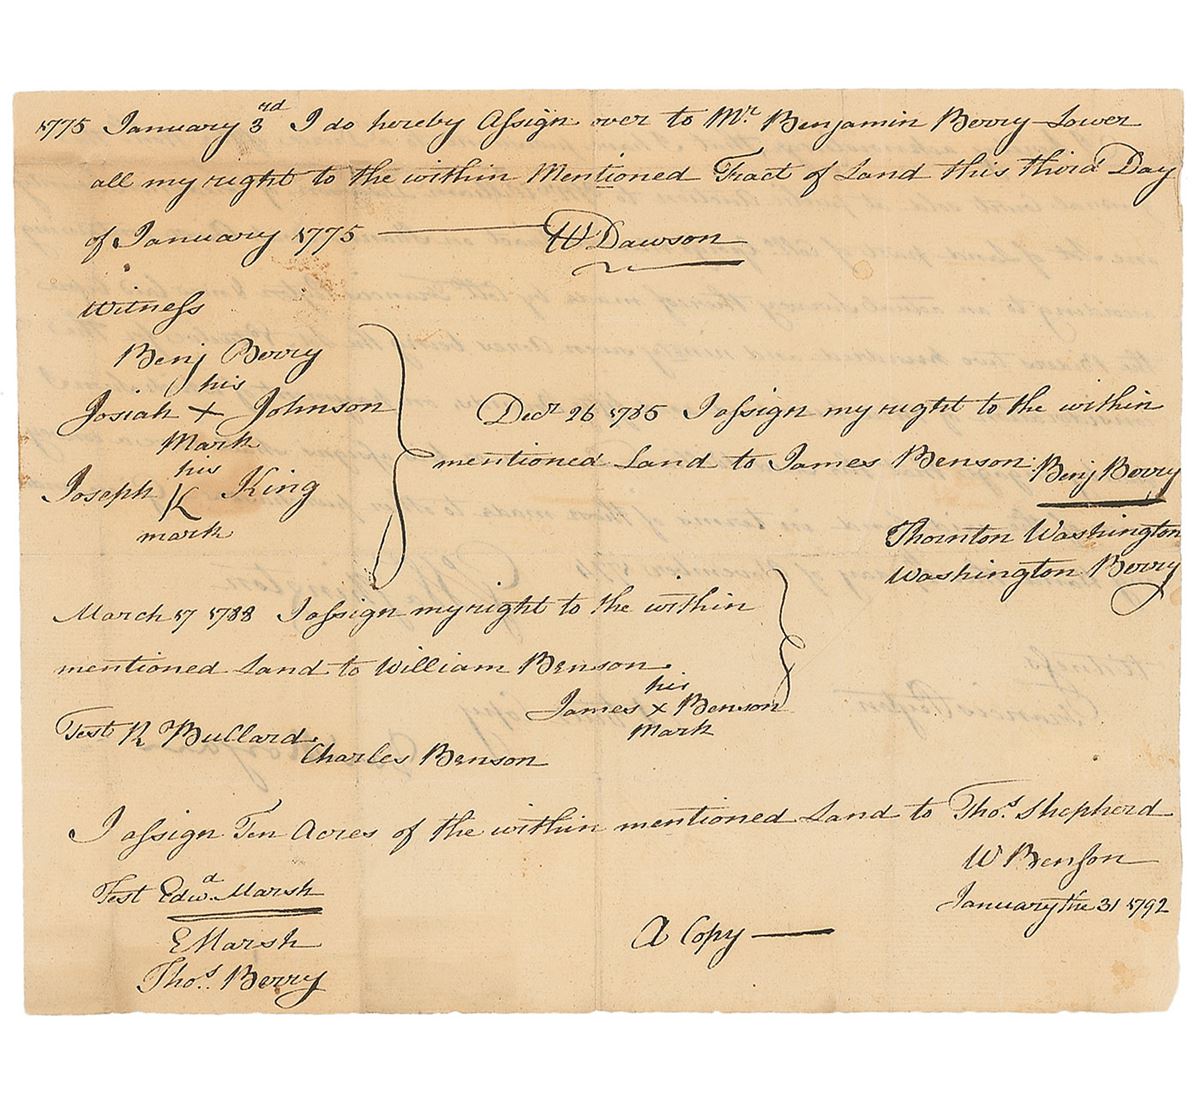 1775 January 3rd I do hereby Assign over to Mr. Benjamin Berry Lower
all my right to the within Mentioned Tract of Land this third Day
of January 1775 W Dawson
Witness
Benj Berry
his
Josiah x Johnson
Mark
his
Joseph K King
mark
Decr 26 1785 I assign my right to the within
mentioned Land to James Benson. Benj Berry
Thornton Washington
Washington Berry
March 17 1788 I assign my right to the within
mentioned Land to William Benson.
his
James x Benson
Mark
Test R Bullard.
Charles Benson
I assign Ten Acres of the within mentioned Land to Thos. Shepherd
W Benson
January the 31 1792
Test Edwd. Marsh
E Marsh
Thos. Berry
A Copy